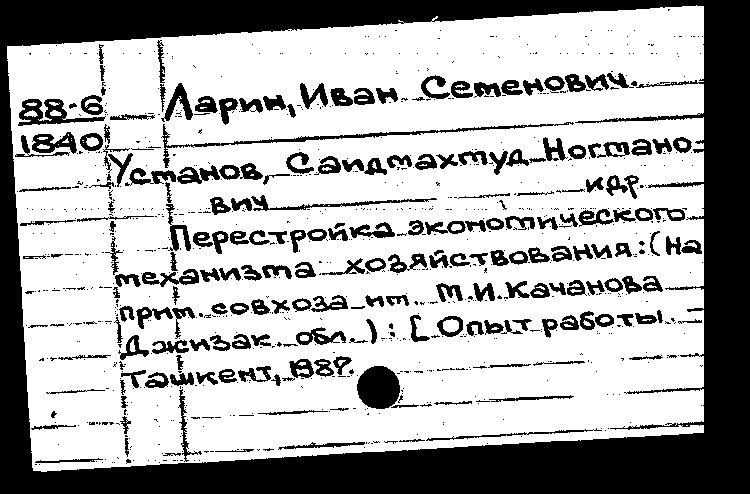 88-6
1840
Ларин, Иван Семенович.
Усманов, Саидмахмуд Ногмано-
вич идр.
Перестройка экономического
механизма хозяйствования: (На
прим. совхоза им. М.И.Качанова
Джизак. обл.) : [ Опыт работы. —
Ташкент, 1987.